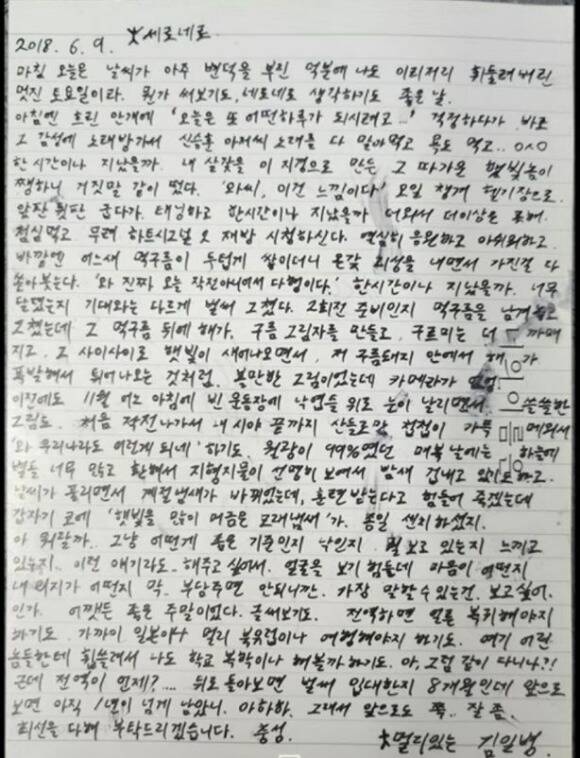 2018. 6. 9. 大세로네로
마침 오늘은 날씨가 아주 변덕을 부린 덕분에 나도 이리저리 휘둘려버린
멋진 토요일이라. 뭔가 써보기도, 네로네로 생각하기도 좋은 날.
아침엔 흐린 안개에 '오늘은 또 어떤하루가 되시려고...' 걱정하다가 바로
그 감성에 노래방가서 신승훈 아저씨 노래를 다 잡아먹고 욕도 먹고.. ㅇㅅㅇ
한시간이나 지났을까. 내 살갗을 이 지경으로 만든 그 따가운 햇빛놈이
쨍하니 거짓말 같이 떴다. '와씨, 이건 느낌이다' 오일 챙겨 헬기장으로.
앞판 뒷판 굽다가. 태닝하고 한시간이나 지났을까 더워서 더이상은 못해.
점심먹고 무려 하트시그널 오 재방 시청하신다. 열심히 응원하고 아쉬워하고.
바깥엔 어느새 먹구름이 두텁게 쌓이더니 온갖 괴성을 내면서 가진걸 다
쏟아붓는다. '와 진짜 오늘 작전아니어서 다행이다.' 한시간이나 지났을까. 너무
달렸는지 기대와는 다르게 벌써 그쳤다. 2회전 준비인지 먹구름을 남겨놓고
그쳤는데 그 먹구름 뒤에 해가. 구름 그림자를 만들고. 구르미는 더 까매
지고. 그 사이사이로 햇빛이 새어나오면서. 저 구름돼지 안에서 해가
폭발해서 튀어나오는 것처럼. 볼만한 그림이었는데 카메라가 없엉
이전에도 11월 어느 아침에 빈 운동장에 낙엽들 위로 눈이 날리면서. 쓸쓸한
그림도. 처음 작전나가서 내 시야 끝까지 산들로만 첩첩이 가득 메워서
'와 우리나라도 이렇게 되네' 하기도. 월광이 99%였던 매복날에는 하늘에
별들 너무 많고 환해서 지형지물이 선명히 보여서 밤새 겁내고 있기도하고.
날씨가 풀리면서 계절냄새가 바뀌었는데, 훈련받는다고 힘들어 죽겠는데
갑자기 코에 '햇빛을 많이 머금은 모래냄새'가. 종일 센치하셨지.
아 뭐랄까. 그냥 어떻게 좁은 기준인지 낙인지 뭘 보고 있는지 느끼고
있는지.. 이런 얘기라도.. 해주고 싶어서. 얼굴을 보기 힘들데 마음이 어떤지
내 의지가 어떤지 막. 부담주면 안되니깐. 가장 말할수 있는건. 보고싶어.
인가. 어쨌든 좋은 주말이었다. 글써보기도. 전역하면 얼른 복귀해야지
하기도. 가까이 일본이나 멀리 북유럽이나 여행해야지 하기도. 얘기 어린
놈들한테 휩쓸려서 나도 학교 복학이나 해볼까 하기도. 아, 그럼 같이 다니나?!
근데 전역이 언제?.... 뒤로 돌아보면 벌써 입대한지 8개월인데 앞으로
보면 아직 1년이 넘게 남았니. 아하하. 그래서 앞으로도 쭉.. 잘 좀.
최선을 다해 부탁드리겠습니다. 충성.
大멀리있는 김일병.